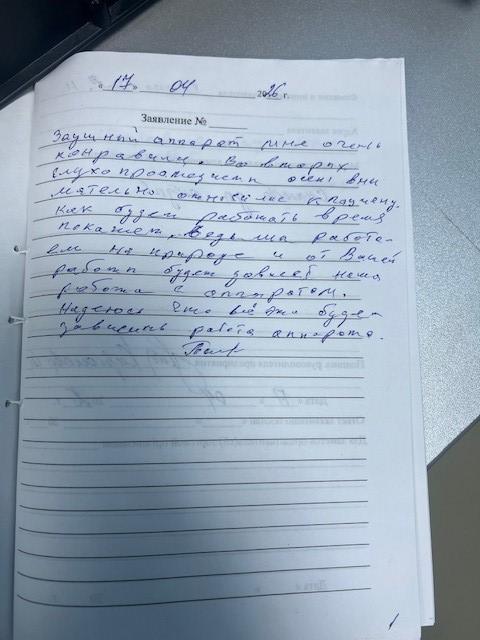 « 17 » 04 2026 г.
Заявление №
Заушный аппарат мне очень
понравился. Во вторых
слухопротезист очень вни
мательно относился к пациену.
Как будет работать время
покажет. Ведь мы работа-
ем на природе и от Вашей
работы будет зависеть наша
работа с аппаратом.
Надеюсь что всё же будет
зависить работа аппарата.